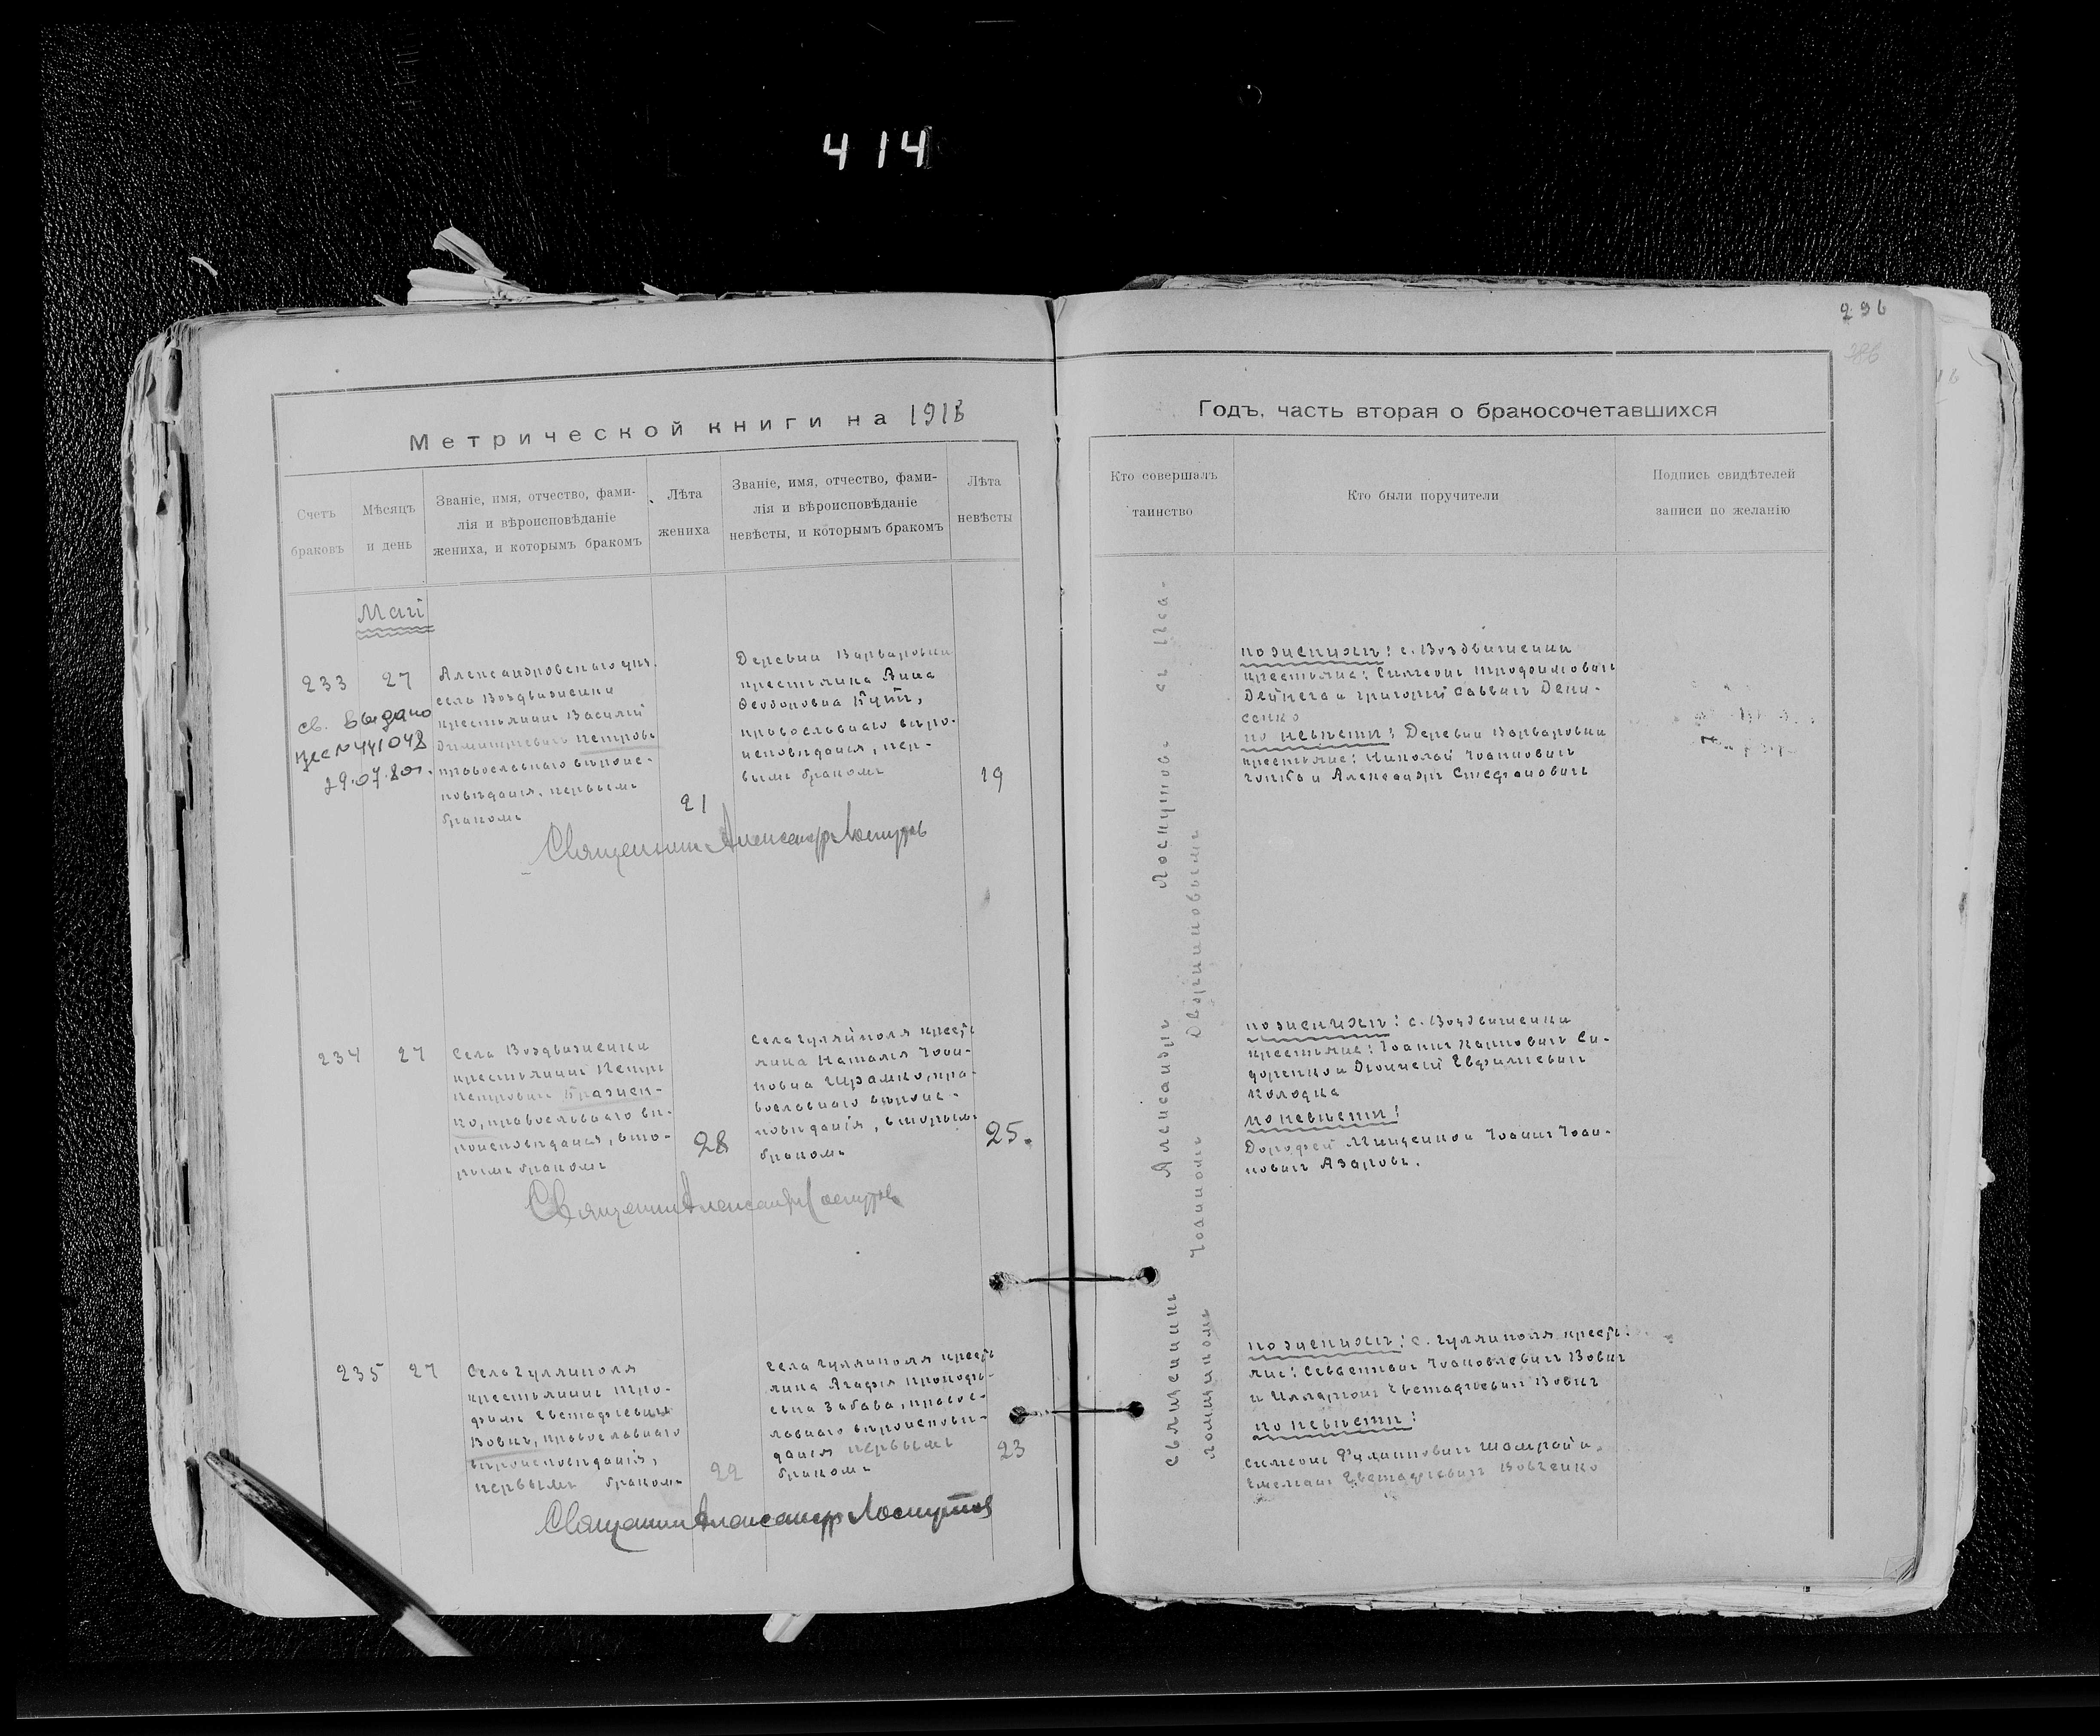 414
296
Метрической книги на 1918
Годъ, часть вторая о бракосочетавшихся
Счетъ браковъ
Мѣсяцъ и день
Званіе, имя, отчество, фами-
лія и вѣроисповѣданіе
жениха, и которымъ бракомъ
Лѣта жениха
Званіе, имя, отчество, фами-
лія и вѣроисповѣданіе
невѣсты, и которымъ бракомъ
Лѣта невѣсты
Кто совершалъ таинство
Кто были поручители
Подпись свидѣтелей
записи по желанію
Май
233
27
св. Выдано
29.07.80г.
Александровскаго уѣз.
села Воздвиженки
крестьянинъ Василій
Димитріевичъ Петровъ
православнаго вѣроис-
повѣданія, первымъ
бракомъ
21
Деревни Варваровки
крестьянка Анна
православнаго вѣро-
исповѣданія, пер-
вымъ бракомъ
19
Священникъ Александръ Лоскутовъ
по женихѣ: с. Воздвиженки
крестьяне: Симеонъ Трофимовичъ
Дейнега и Григорій Саввичъ Дени-
сенко
по невѣстѣ: Деревни Варваровки
крестьяне: Николай Іоанновичъ
и Александръ Стефановичъ
234
27
Села Воздвиженки
крестьянинъ Петръ
Петровичъ Бражен-
ко, православнаго вѣ-
роисповѣданія, вто-
рымъ бракомъ
28
Села Гуляйполя крест.
янка Наталія Іоан-
новна Шрамко, пра-
вославнаго вѣроис-
повѣданія, вторымъ
бракомъ
25.
Священникъ Александръ Лоскутовъ
по женихѣ: с. Воздвиженки
крестьяне: Іоаннъ Карповичъ Си-
доренко и Діонисій Евфиміевичъ
Колодка
по невѣстѣ:
Дорофей Мищенко и Іоаннъ Іоан-
новичъ Азаровъ.
235
27
Села Гуляйполя
крестьянинъ Тро-
фимъ Евстафіевичъ
Вовкъ, православнаго
вѣроисповѣданія,
первымъ бракомъ
22
Села Гуляйполя крест.
янка Агафія Прокофі-
евна Забава, правос-
лавнаго вѣроисповѣ-
данія первымъ
бракомъ
23
Священникъ Александръ Лоскутовъ
по женихѣ: с. Гуляйполя крест.
яне: Севастіанъ Іоаковлевичъ Вовкъ
и Илларіонъ Евстафіевичъ Вовкъ
по невѣстѣ:
Симеонъ Филипповичъ Шамрай и
Емеліанъ Евстафіевичъ Вовченко
Священникъ Александръ Лоскутовъ съ Пса-
ломщикомъ Іоанномъ Дворниковымъ